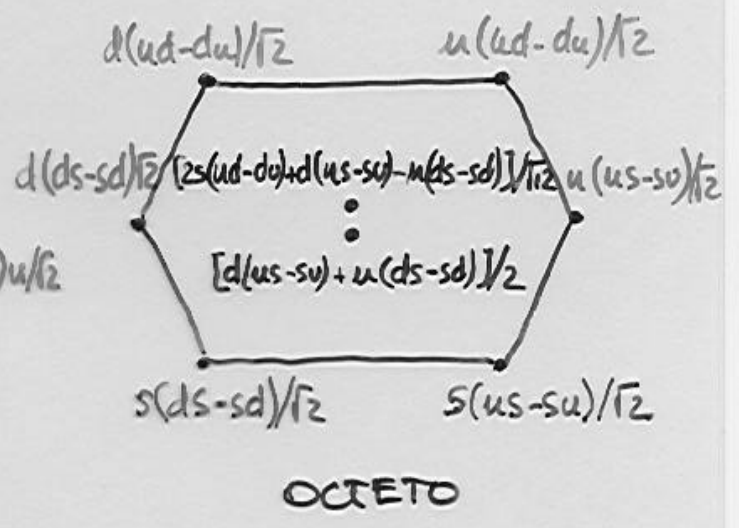 d(ud-du)/√2
u(ud-du)/√2
d(ds-sd)√2
[2s(ud-du)+d(us-su)-u(ds-sd)]/√12
u(us-su)/√2
)u/√2
[d(us-su)+u(ds-sd)]/2
s(ds-sd)/√2
s(us-su)/√2
OCTETO